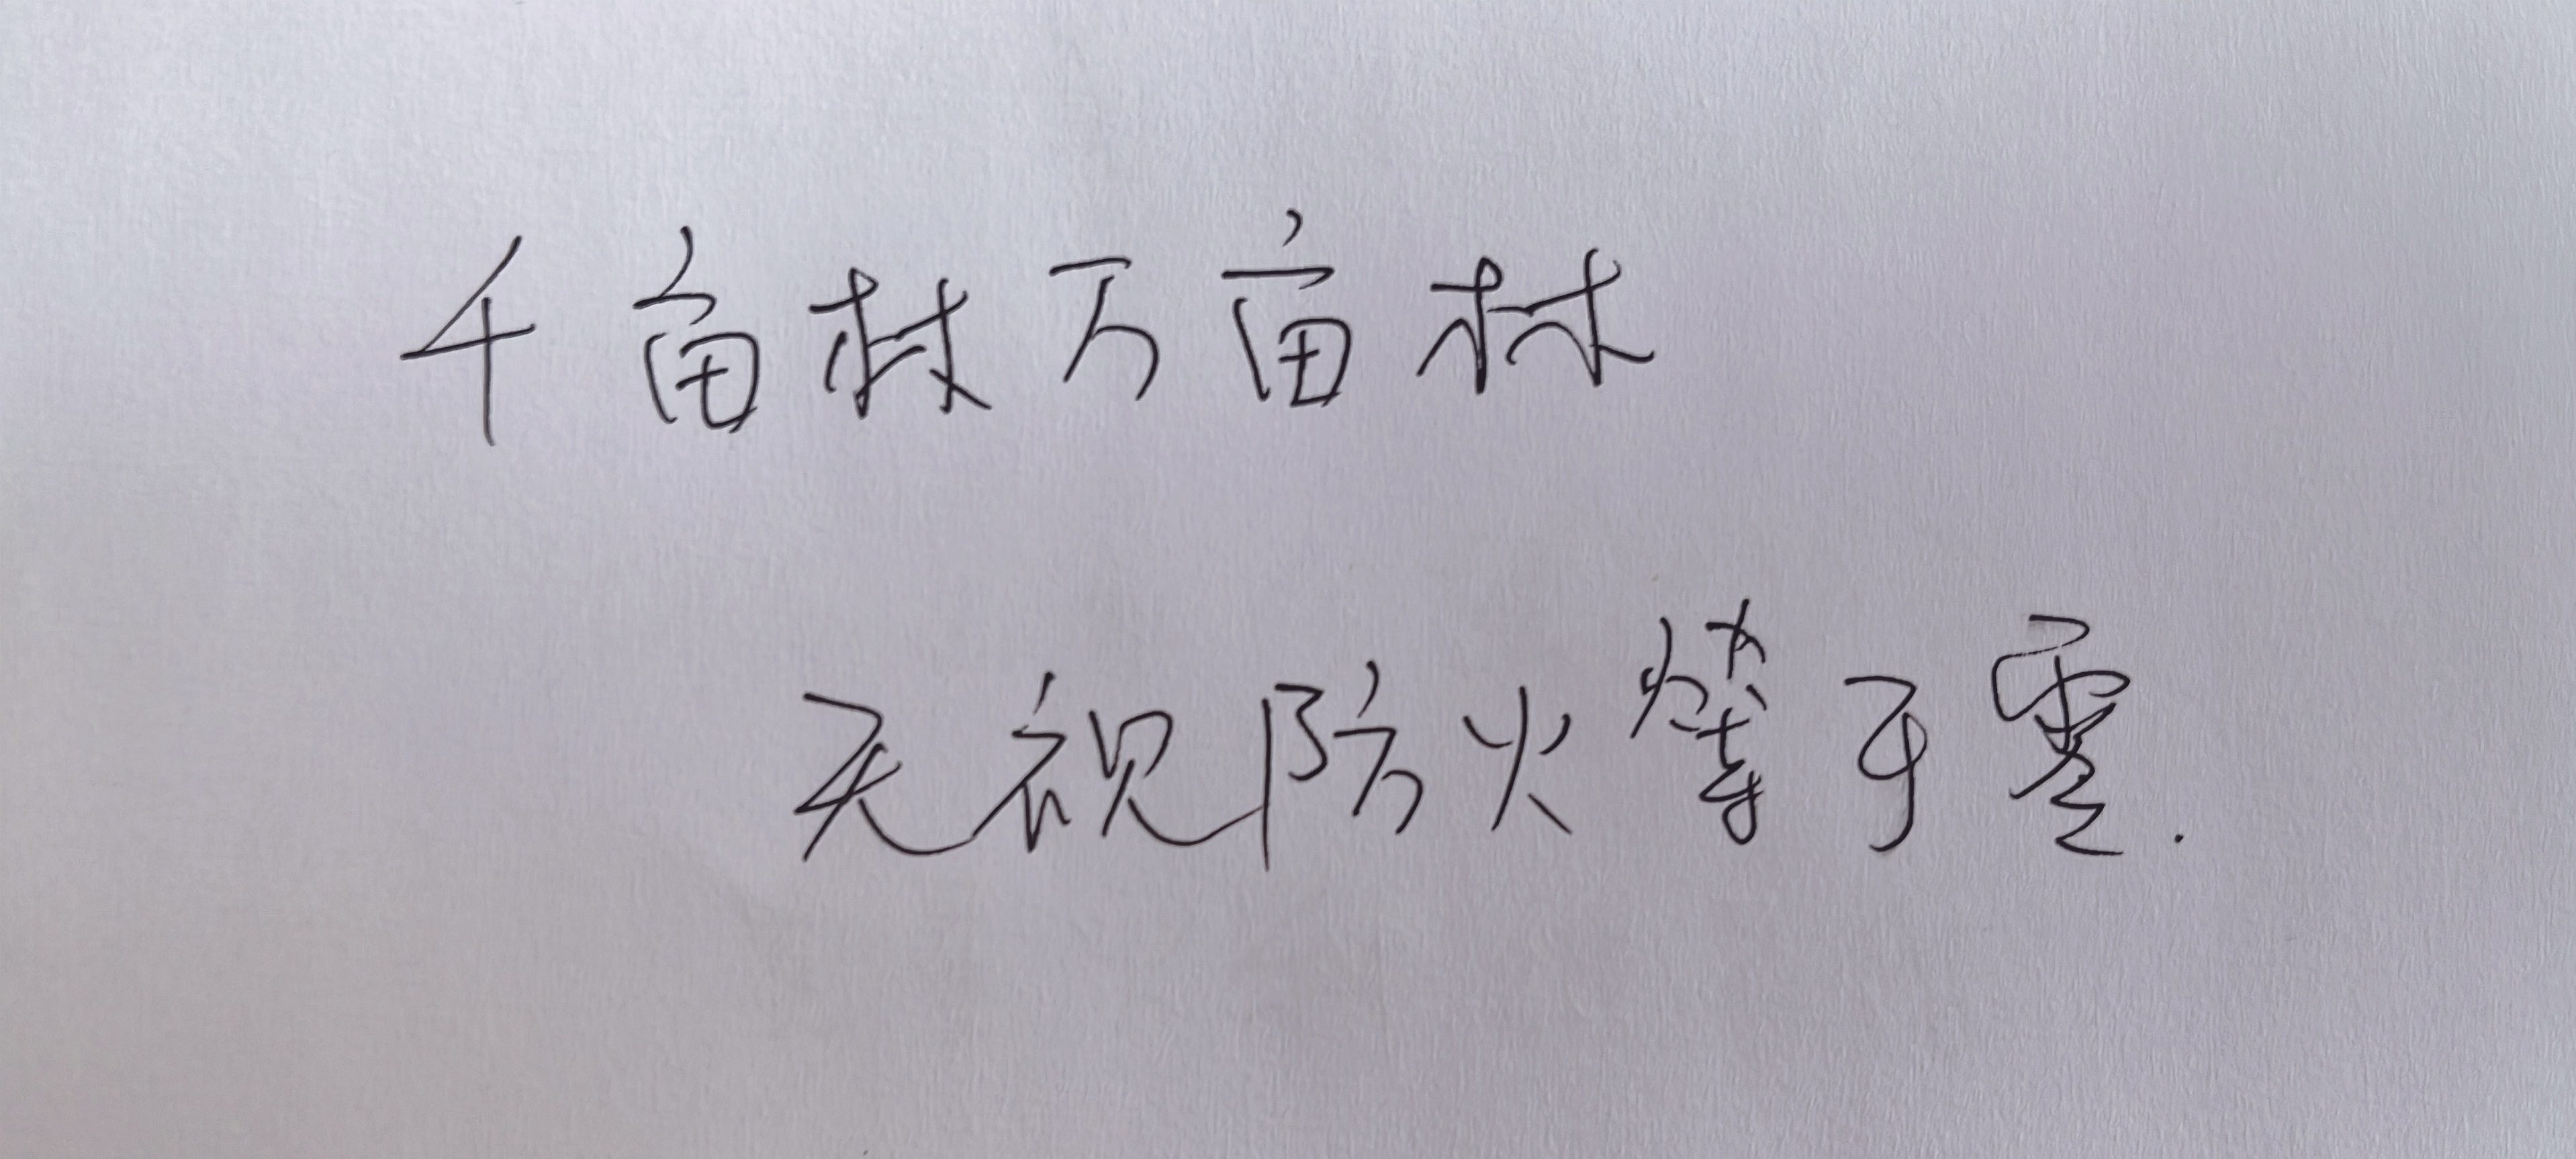 千亩林万亩林
无视防火等于零.